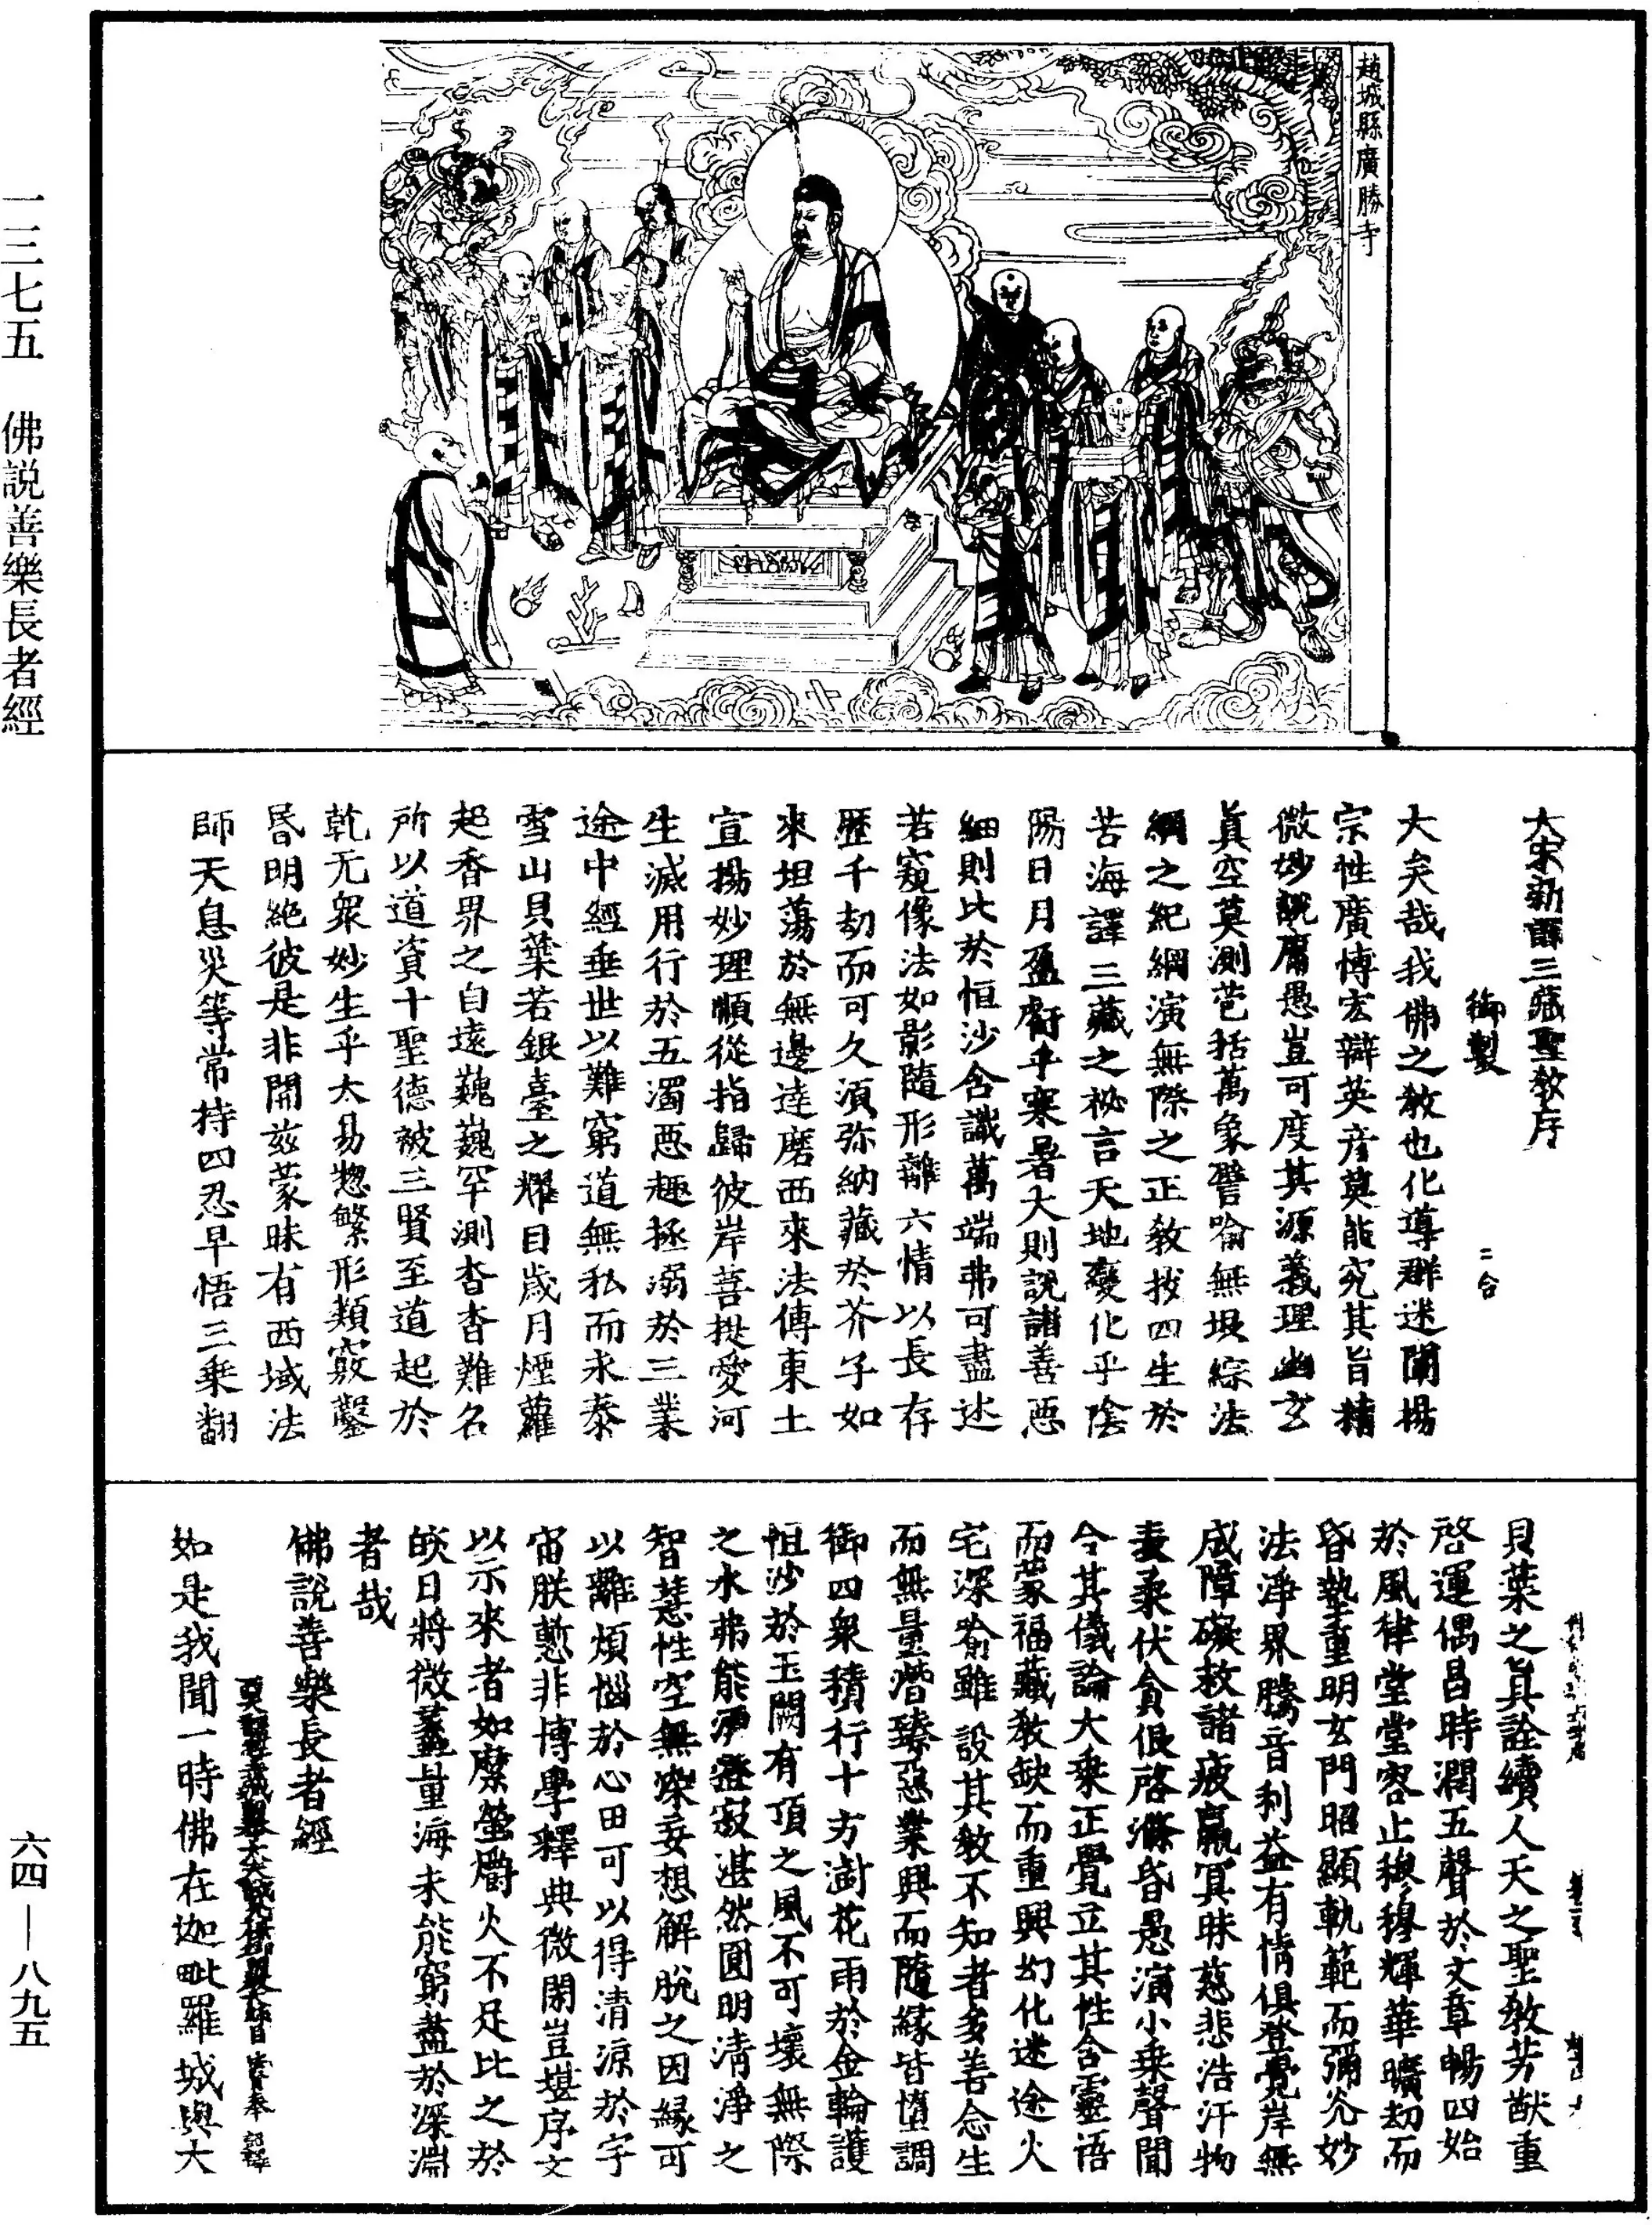 趙城縣廣勝寺
一三七五　佛説善樂長者經
六四—八九五
大宋新譯三藏聖教序
御製　二合
大矣哉我佛之教也化導群迷闡揚
宗性廣博宏辯英彦莫能究其旨精
微妙說庸愚豈可度其源義理幽玄
真空莫測苞括萬象譬喻無垠綜法
網之紀綱演無際之正教拔四生於
苦海譯三藏之祕言天地變化乎陰
陽日月盈虧乎寒暑大則說諸善惡
細則比於恒沙含識萬端弗可盡述
若窺像法如影隨形離六情以長存
歷千劫而可久須弥納藏於芥子如
來坦蕩於無邊達磨西來法傳東土
宣揚妙理順從指歸彼岸菩提愛河
生滅用行於五濁惡趣拯溺於三業
途中經垂世以難窮道無私而永泰
雪山貝葉若銀臺之耀目歲月煙蘿
起香界之自遠巍巍罕測杳杳難名
所以道資十聖德被三賢至道起於
乾元衆妙生乎太易揔繁形類竅鑿
昏明絶彼是非開兹蒙昧有西域法
師天息災等常持四忍早悟三乗翻
貝葉之真詮續人天之聖教芳猷重
啓運偶昌時潤五聲於文章暢四始
於風律堂堂容止穆穆輝華曠劫而
昏墊重明玄門昭顯軌範而彌光妙
法淨界騰音利益有情俱登覺岸無
成障礙救諸疲羸冥昧慈悲浩汗物
表柔伏貪佷啓滌昏愚演小乗聲聞
今其儀論大乗正覺立其性含靈语
而蒙福藏教缺而重興幻化迷途火
宅深喻雖設其教不知者多善念生
而無量潛臻惡業興而隨緣皆墮調
御四衆積行十方澍花雨於金輪護
恒沙於玉闕有頂之風不可壞無際
之水弗能漂澄寂湛然圓明清淨之
智慧性空無染妄想解脫之因緣可
以離煩惱於心田可以得清涼於宇
宙朕慙非博學釋典微閑豈堪序文
以示來者如縻螢爝火不足比之於
皎日將微蠡量海未能窮盡於深淵
者哉
佛說善樂長者經
如是我聞一時佛在迦毗羅城與大